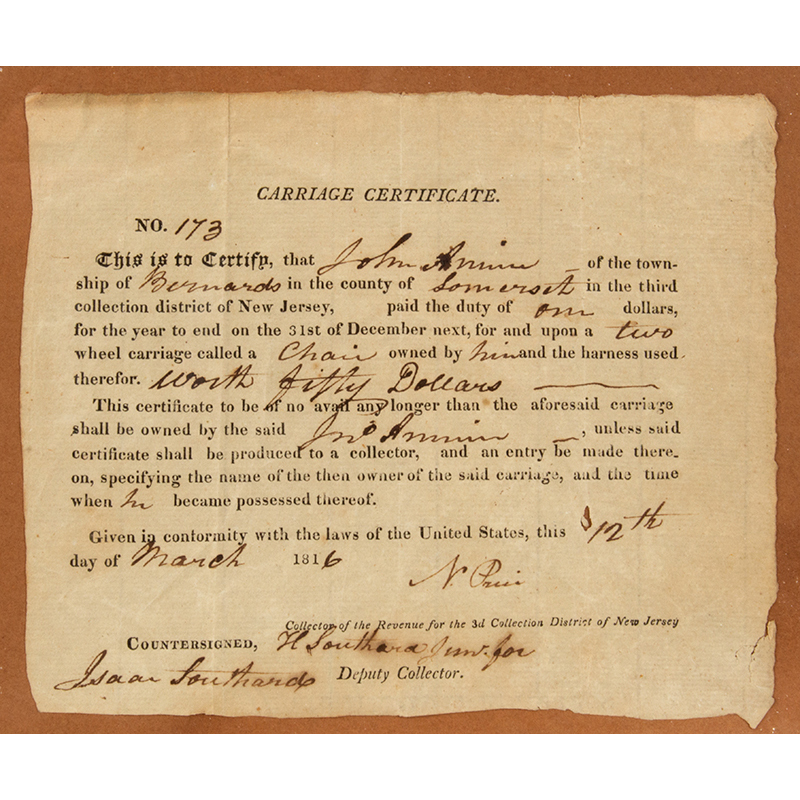 CARRIAGE CERTIFICATE.
NO. 173
This is to Certify, that John Annin of the town-
ship of Bernards in the county of Somerset in the third
collection district of New Jersey, paid the duty of one dollars,
for the year to end on the 31st of December next, for and upon a two
wheel carriage called a Chair owned by him and the harness used
therefor. worth fifty Dollars
This certificate to be of no avail any longer than the aforesaid carriage
shall be owned by the said Jno Annin, unless said
certificate shall be produced to a collector, and an entry be made there-
on, specifying the name of the then owner of the said carriage, and the time
when he became possessed thereof.
Given in conformity with the laws of the United States, this 12th
day of March 1816
N. Price
Collector of the Revenue for the 3d Collection District of New Jersey
COUNTERSIGNED, H Southard Junr. for
Isaac Southard Deputy Collector.